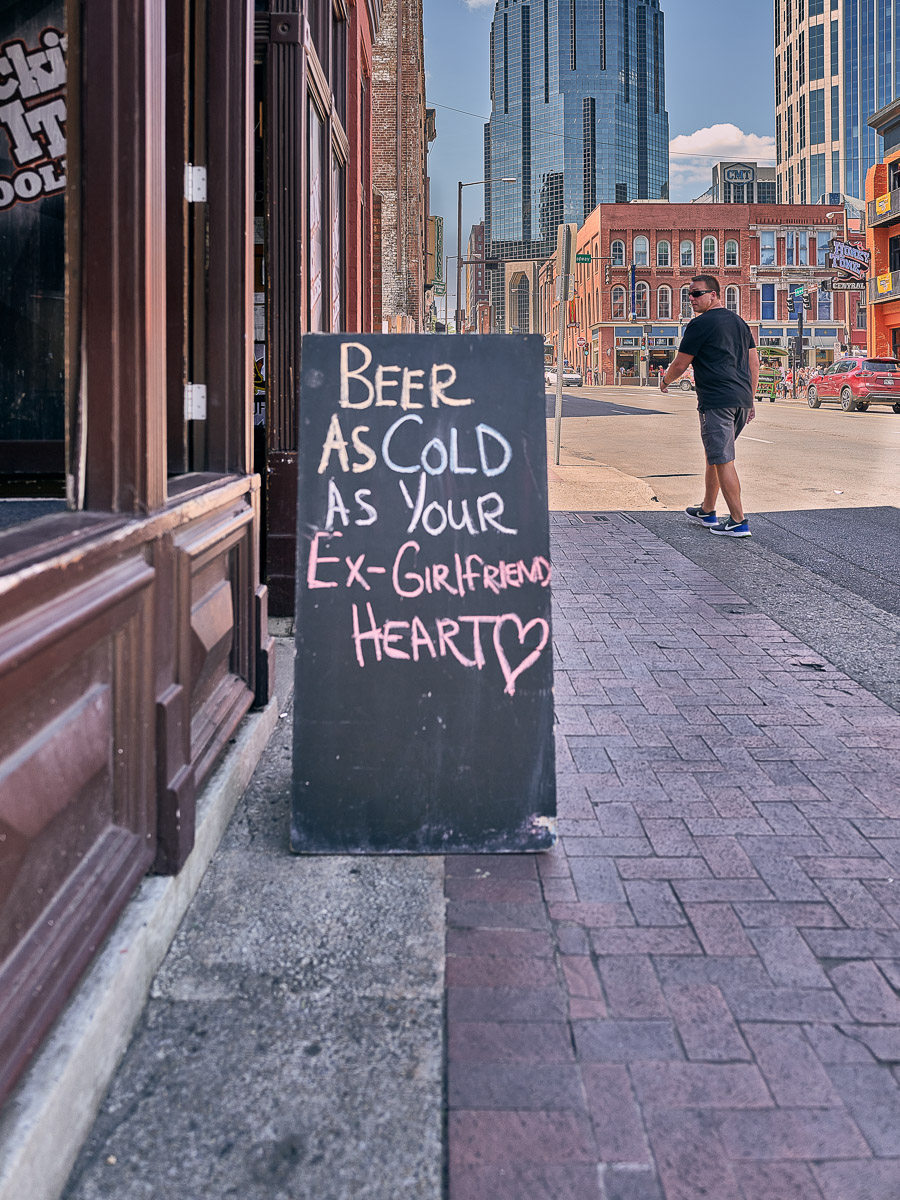 cki
IT
OOL
BEER
AS COLD
AS YOUR
EX-GIRLFRIEND
HEART
CMT
HONKY
TONK
CENTRAL